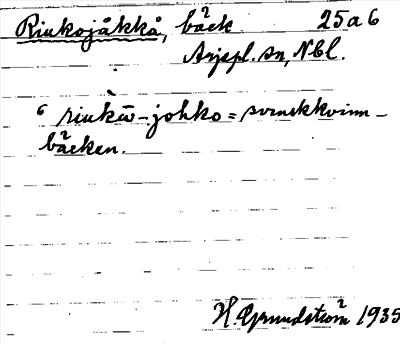 Riukojåkkå, bäck 25a6
Arjepl. sn, Nbl.
riukō-johko = svenskkvinn-
bäcken.
H. Grundström 1935